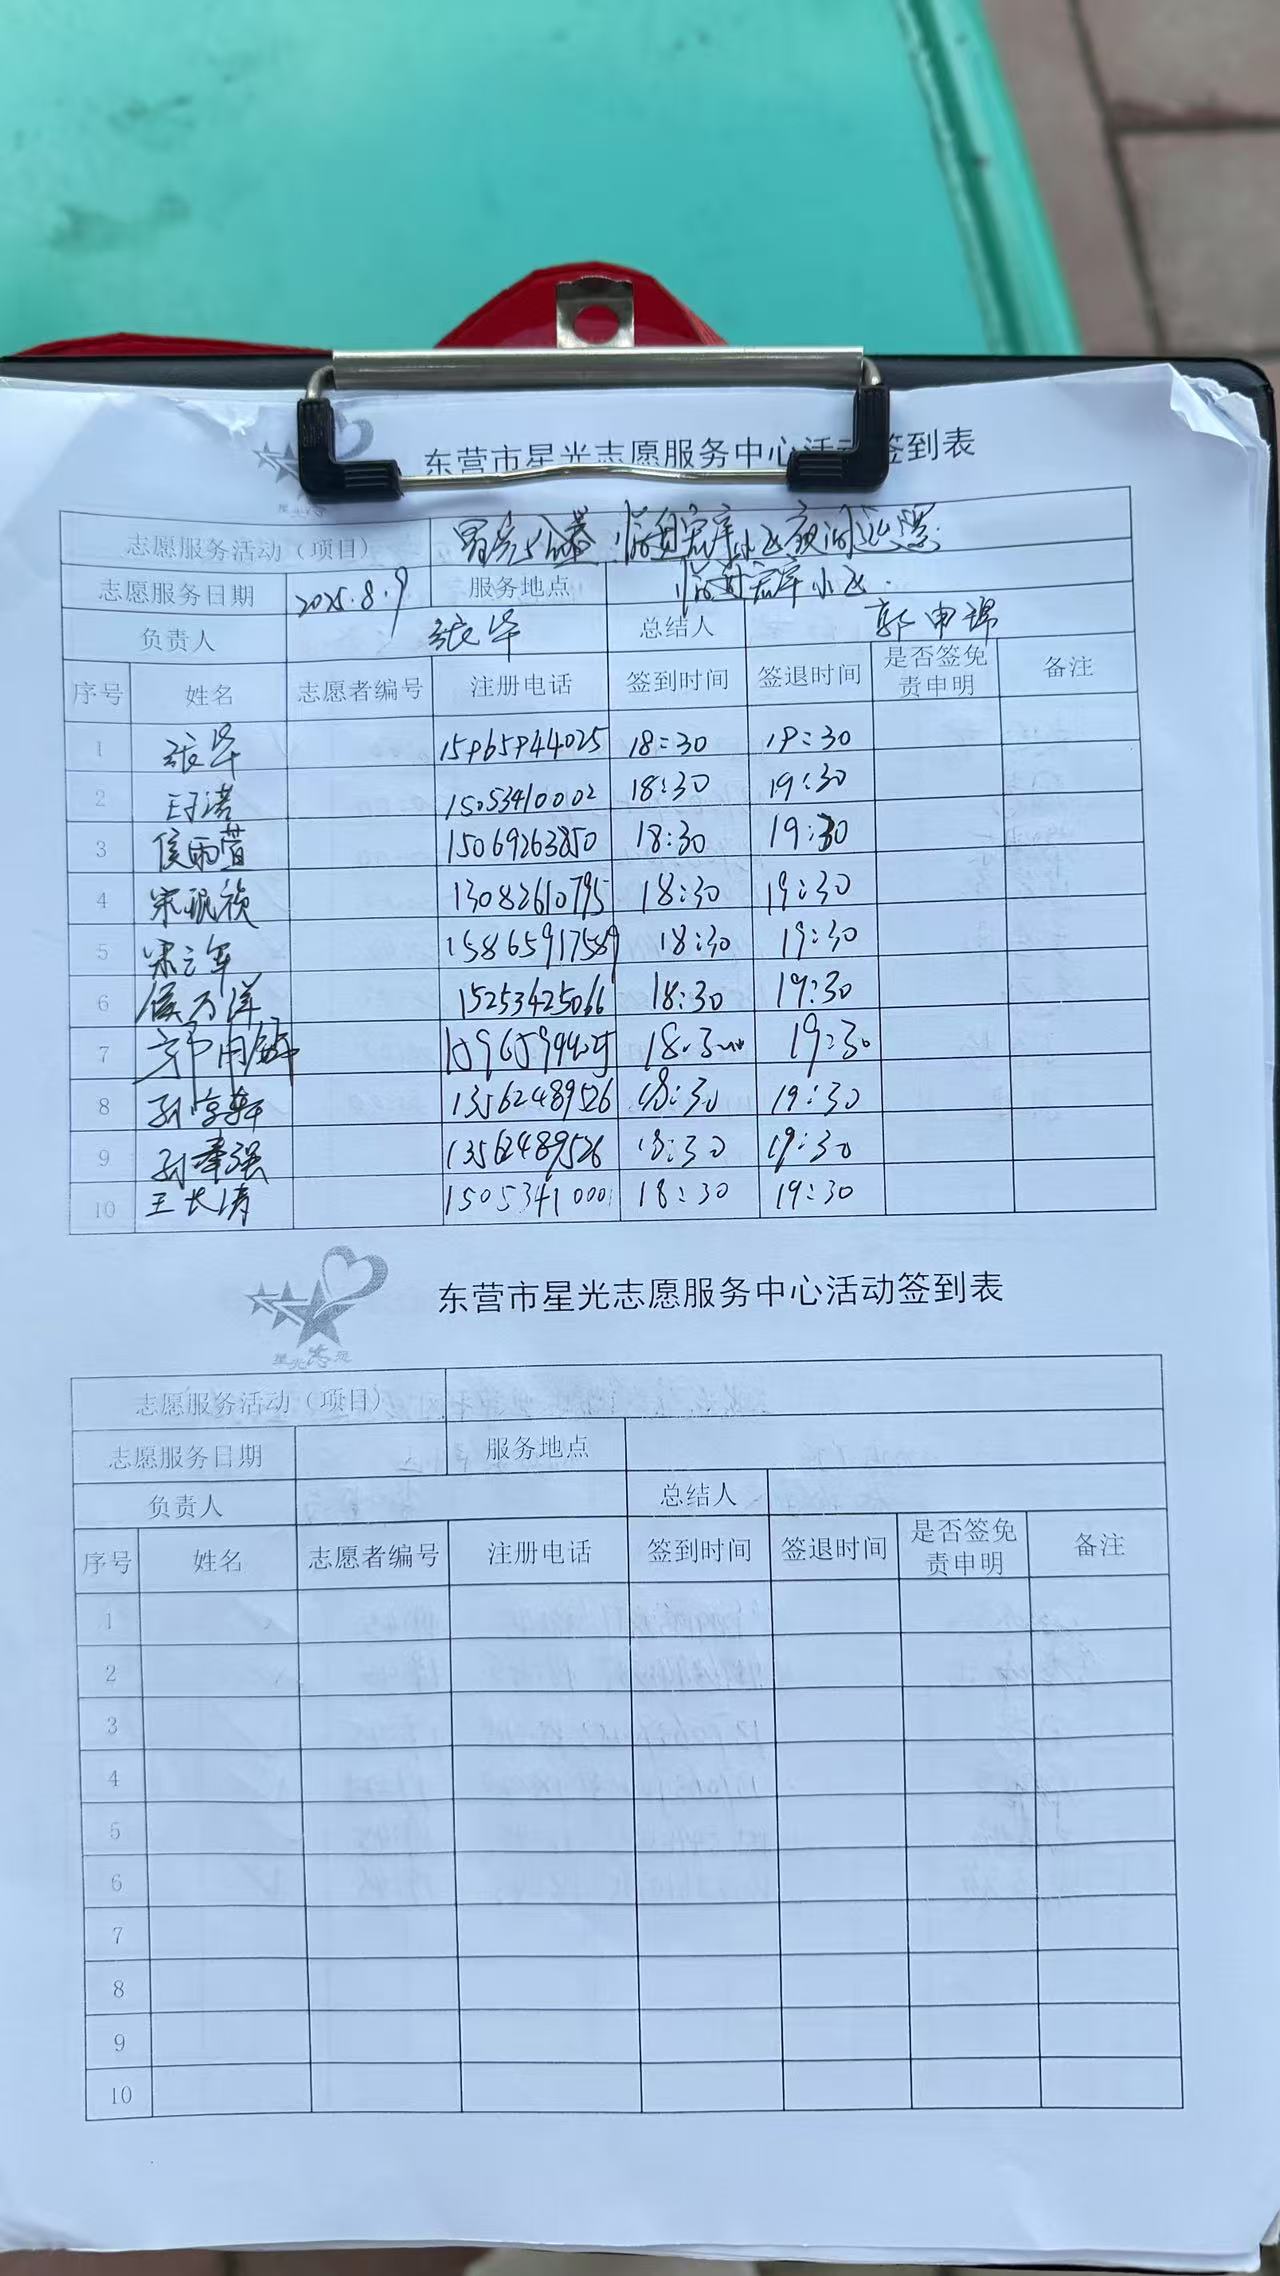 东营市星光志愿服务中心活动签到表
志愿服务活动（项目）
志愿服务日期 2025.8.9 服务地点 小区
负责人 张华 总结人 郭申锦
序号 姓名 志愿者编号 注册电话 签到时间 签退时间 是否签免责申明 备注
1 张华 18:30 19:30
2 15053410002 18:30 19:30
3 侯雨萱 15069263850 18:30 19:30
4 宋珉祯 13082610795 18:30 19:30
5 宋立军 15865917589 18:30 19:30
6 侯万洋 15253425066 18:30 19:30
7 19:30
8 孙宗轩 13562489526 18:30 19:30
9 孙奉强 13562489526 18:30 19:30
10 王长涛 15053410001 18:30 19:30
星光志愿
东营市星光志愿服务中心活动签到表
志愿服务活动（项目）
志愿服务日期 服务地点
负责人 总结人
序号 姓名 志愿者编号 注册电话 签到时间 签退时间 是否签免责申明 备注
1
2
3
4
5
6
7
8
9
10